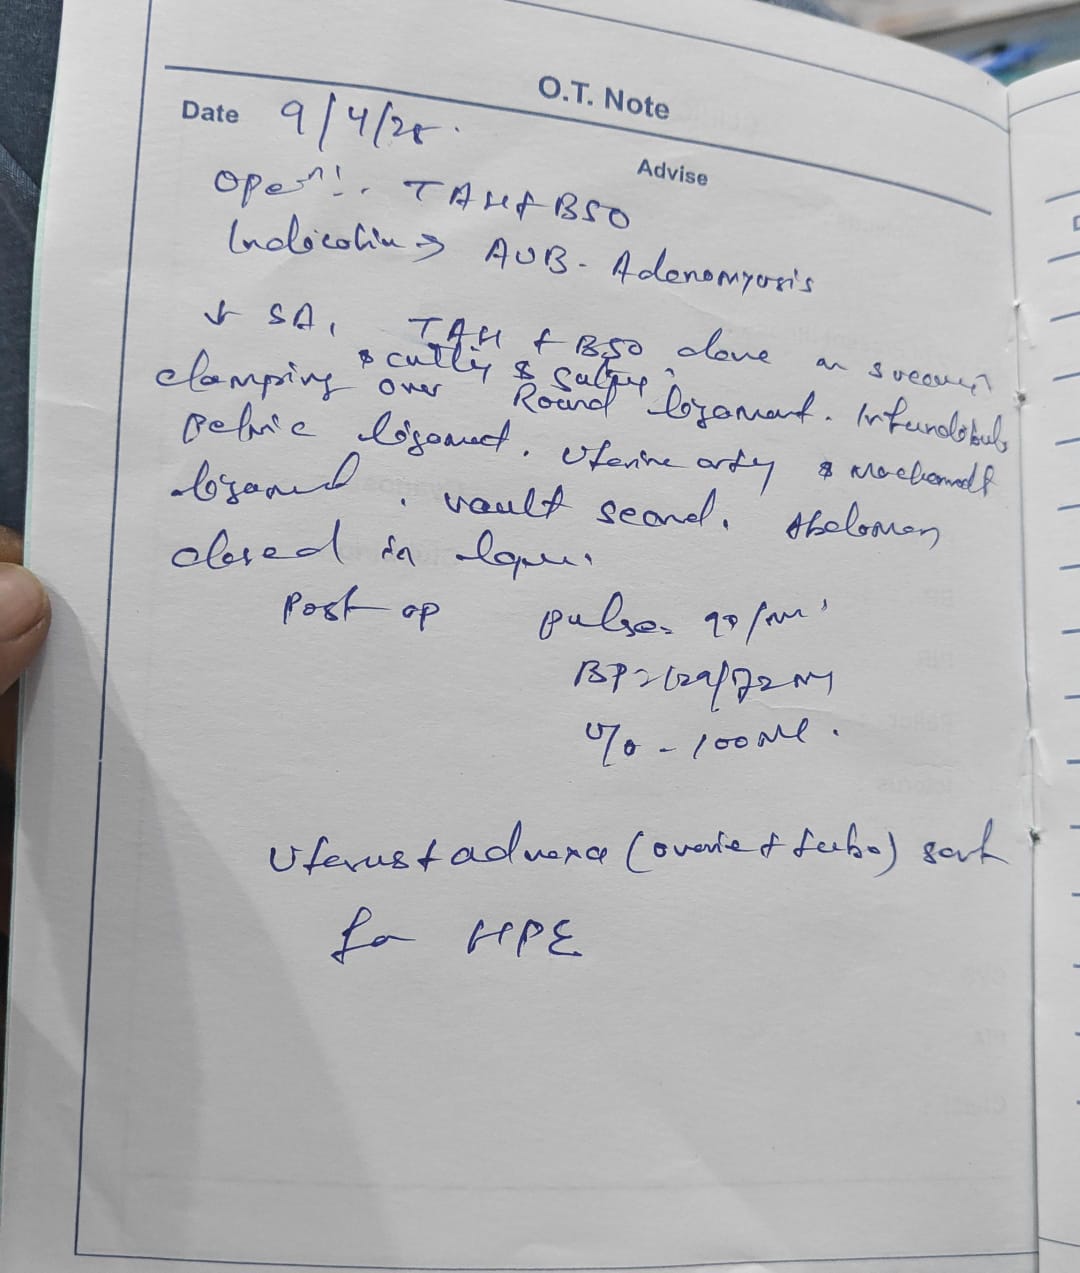 O.T. Note
Date 9/4/25.
Advise
Open:. TAH+BSO
Indication → AUB - Adenomyosis
↓ SA, TAH + BSO done
clamping & cutting & over Round ligament. Infundibulo
Pelvic ligament. Uterine artery &
ligament. vault. Abdomen
closed in
Post op pulse= 90/mi'
BP=129/72
U/o - 100 ml.
Uterus + adnexa (ovarie + tube) sent
for HPE